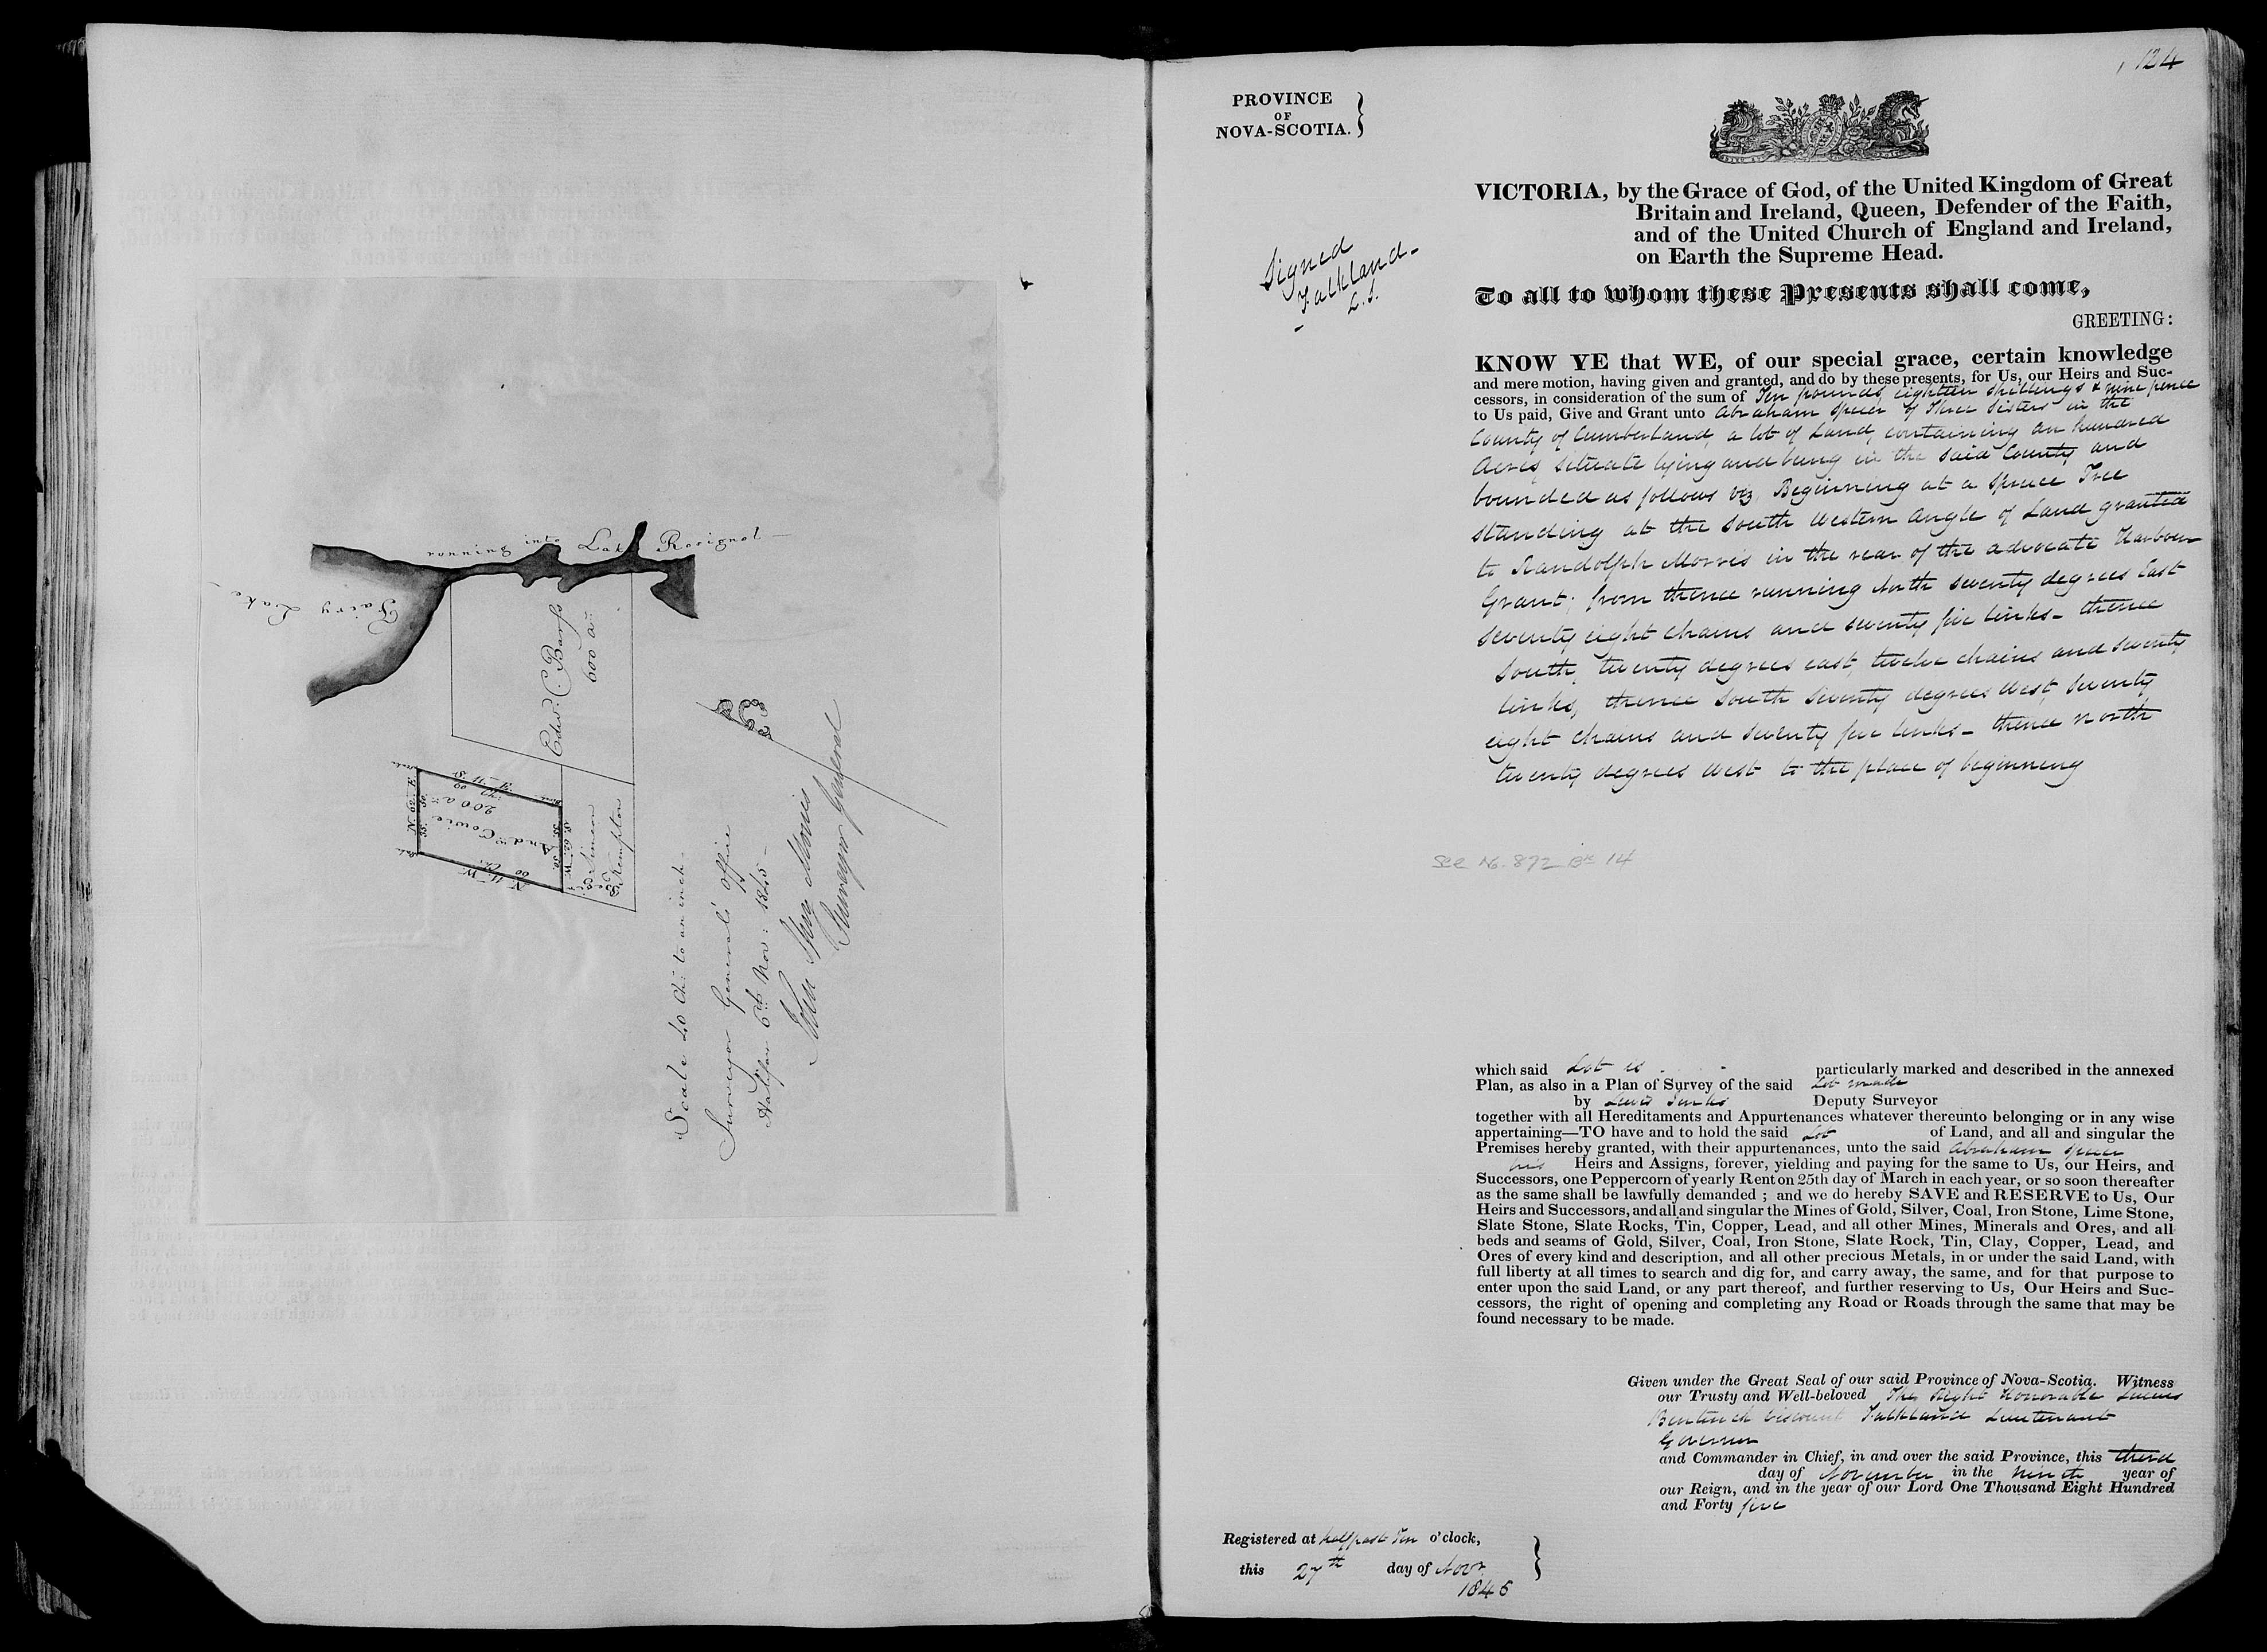 running into Lake Rosignol
Fairy Lake
Edwd. C. Barss
600 as.
N. 62. E.
35. 50.
200 as
Andw. Cowie
S. 62. W.
35. 50.
Simeon
Kempton
Scale 40 Chs. to an inch
Surveyor General's Office
Halifax 6th Nov: 1845
John Spry Morris
Surveyor General
124
PROVINCE
OF
NOVA-SCOTIA.
Signed
Falkland
L. S.
VICTORIA, by the Grace of God, of the United Kingdom of Great
Britain and Ireland, Queen, Defender of the Faith,
and of the United Church of England and Ireland,
on Earth the Supreme Head.
To all to whom these Presents shall come,
GREETING:
KNOW YE that WE, of our special grace, certain knowledge
and mere motion, having given and granted, and do by these presents, for Us, our Heirs and Suc-
cessors, in consideration of the sum of Ten pounds, eighteen shillings & nine pence
to Us paid, Give and Grant unto Abraham Spicer of Three Sisters in the
County of Cumberland, a lot of Land, containing an hundred
Acres, situate lying and being in the said County and
bounded as follows viz Beginning at a Spruce Tree
standing at the South Western Angle of Land granted
to Randolph Morris in the rear of the advocate Harbour
Grant; from thence running North seventy degrees East
seventy eight chains and seventy five links - thence
South, twenty degrees east, twelve chains and seventy
links, thence South Seventy degrees West, Seventy
eight chains and seventy five links - thence north
twenty degrees West to the place of beginning
See No. 872 Bk 14
which said Lot is particularly marked and described in the annexed
Plan, as also in a Plan of Survey of the said Lot made
by Lewis Jenks Deputy Surveyor
together with all Hereditaments and Appurtenances whatever thereunto belonging or in any wise
appertaining—TO have and to hold the said Lot of Land, and all and singular the
Premises hereby granted, with their appurtenances, unto the said Abraham Spicer
his Heirs and Assigns, forever, yielding and paying for the same to Us, our Heirs, and
Successors, one Peppercorn of yearly Rent on 25th day of March in each year, or so soon thereafter
as the same shall be lawfully demanded ; and we do hereby SAVE and RESERVE to Us, Our
Heirs and Successors, and all and singular the Mines of Gold, Silver, Coal, Iron Stone, Lime Stone,
Slate Stone, Slate Rocks, Tin, Copper, Lead, and all other Mines, Minerals and Ores, and all
beds and seams of Gold, Silver, Coal, Iron Stone, Slate Rock, Tin, Clay, Copper, Lead, and
Ores of every kind and description, and all other precious Metals, in or under the said Land, with
full liberty at all times to search and dig for, and carry away, the same, and for that purpose to
enter upon the said Land, or any part thereof, and further reserving to Us, Our Heirs and Suc-
cessors, the right of opening and completing any Road or Roads through the same that may be
found necessary to be made.
Given under the Great Seal of our said Province of Nova-Scotia. Witness
our Trusty and Well-beloved The Right Honorable Lucius
Bentinck Viscount Falkland Lieutenant
Governor
and Commander in Chief, in and over the said Province, this third
day of November in the Ninth year of
our Reign, and in the year of our Lord One Thousand Eight Hundred
and Forty five
Registered at half past Ten o'clock,
this 27th day of Novr
1845